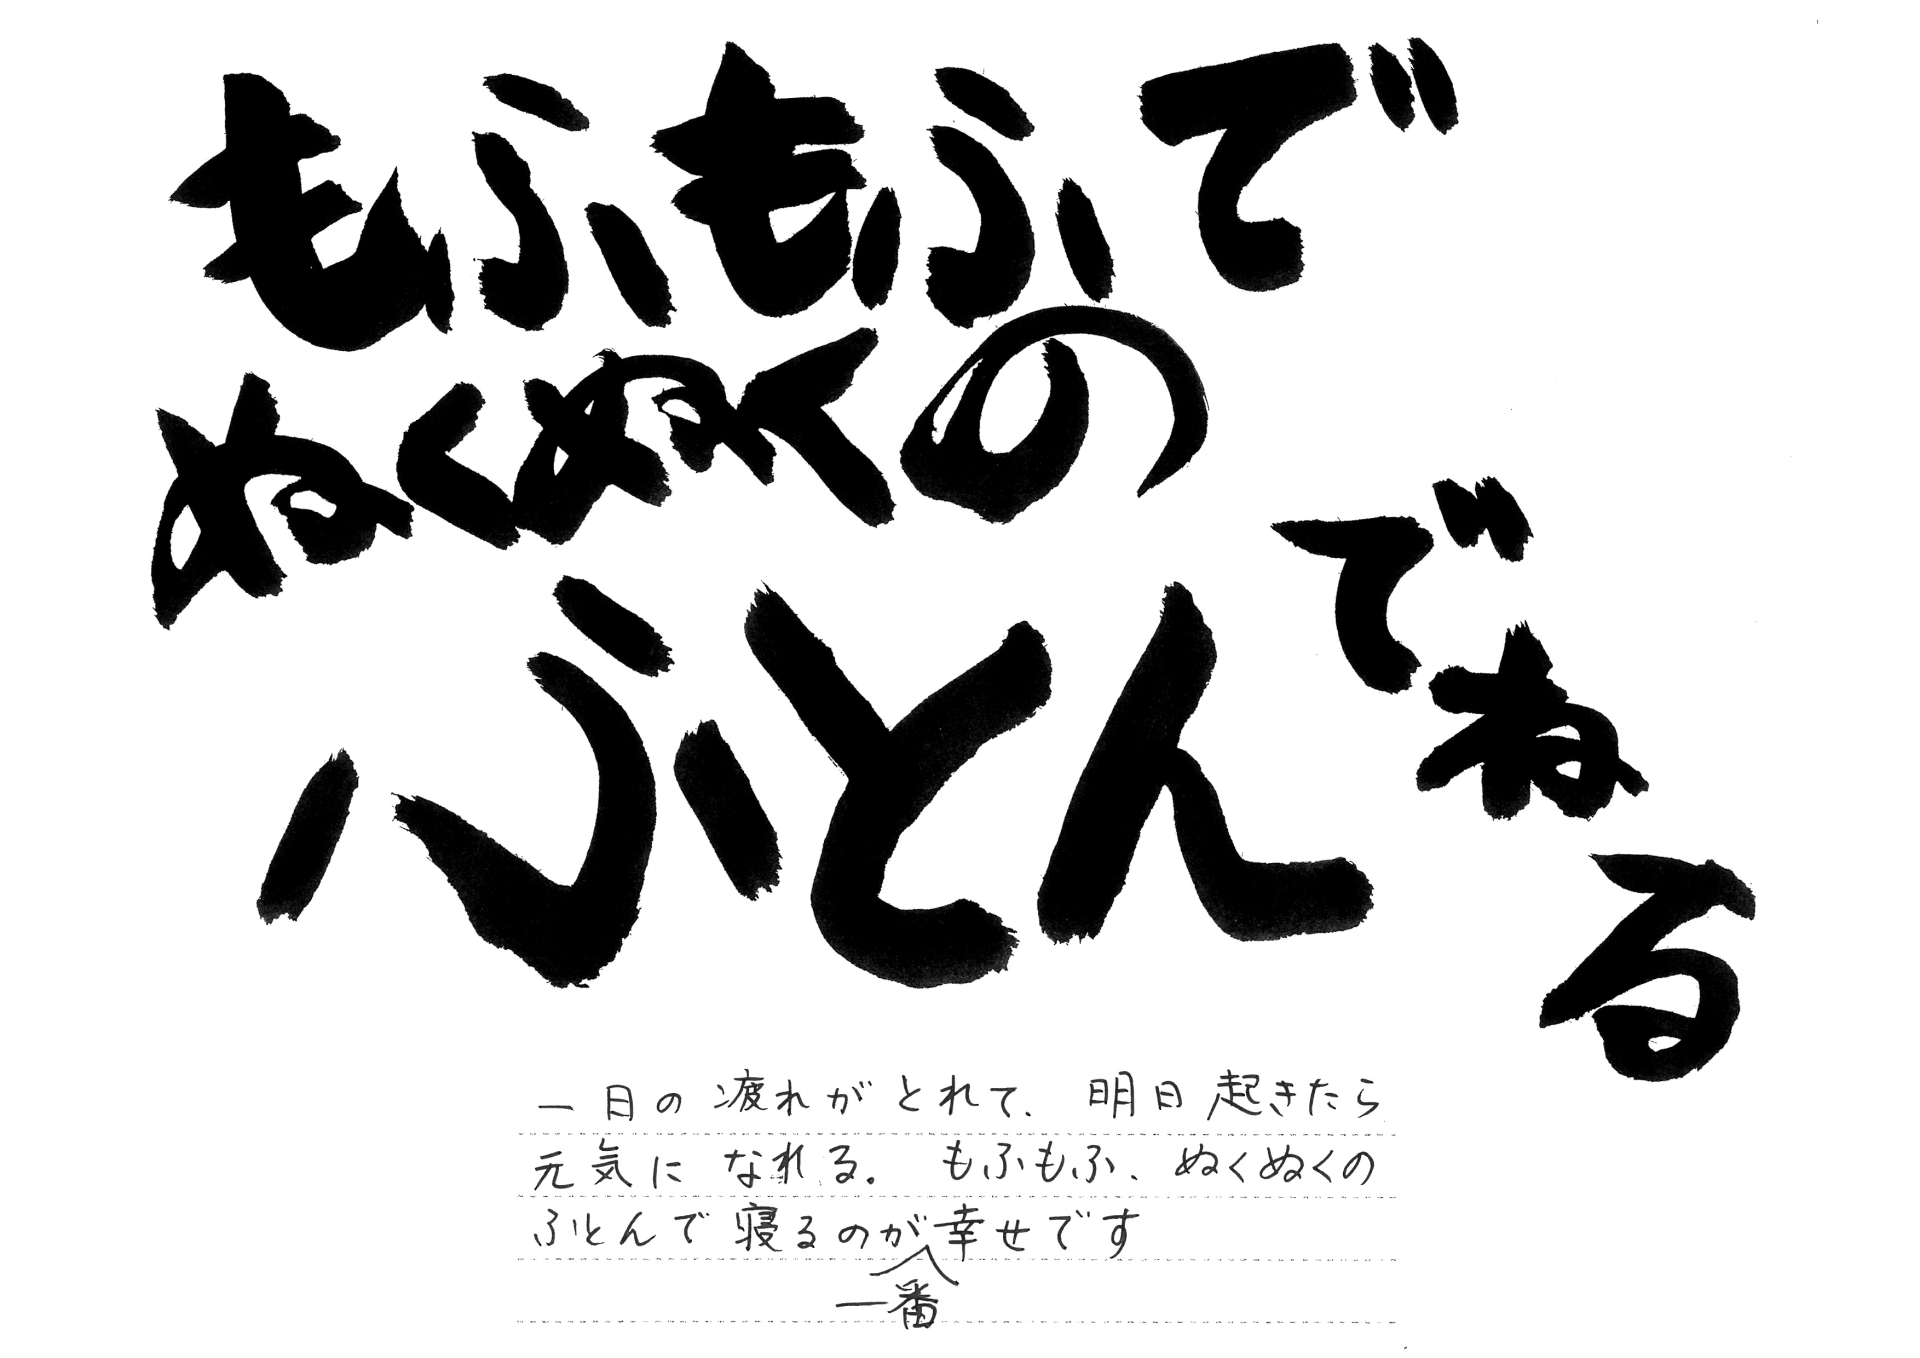 もふもふで
ぬくぬくの
ふとん
でねる
一日の疲れがとれて、明日起きたら
元気になれる。もふもふ、ぬくぬくの
ふとんで寝るのが幸せです
一番